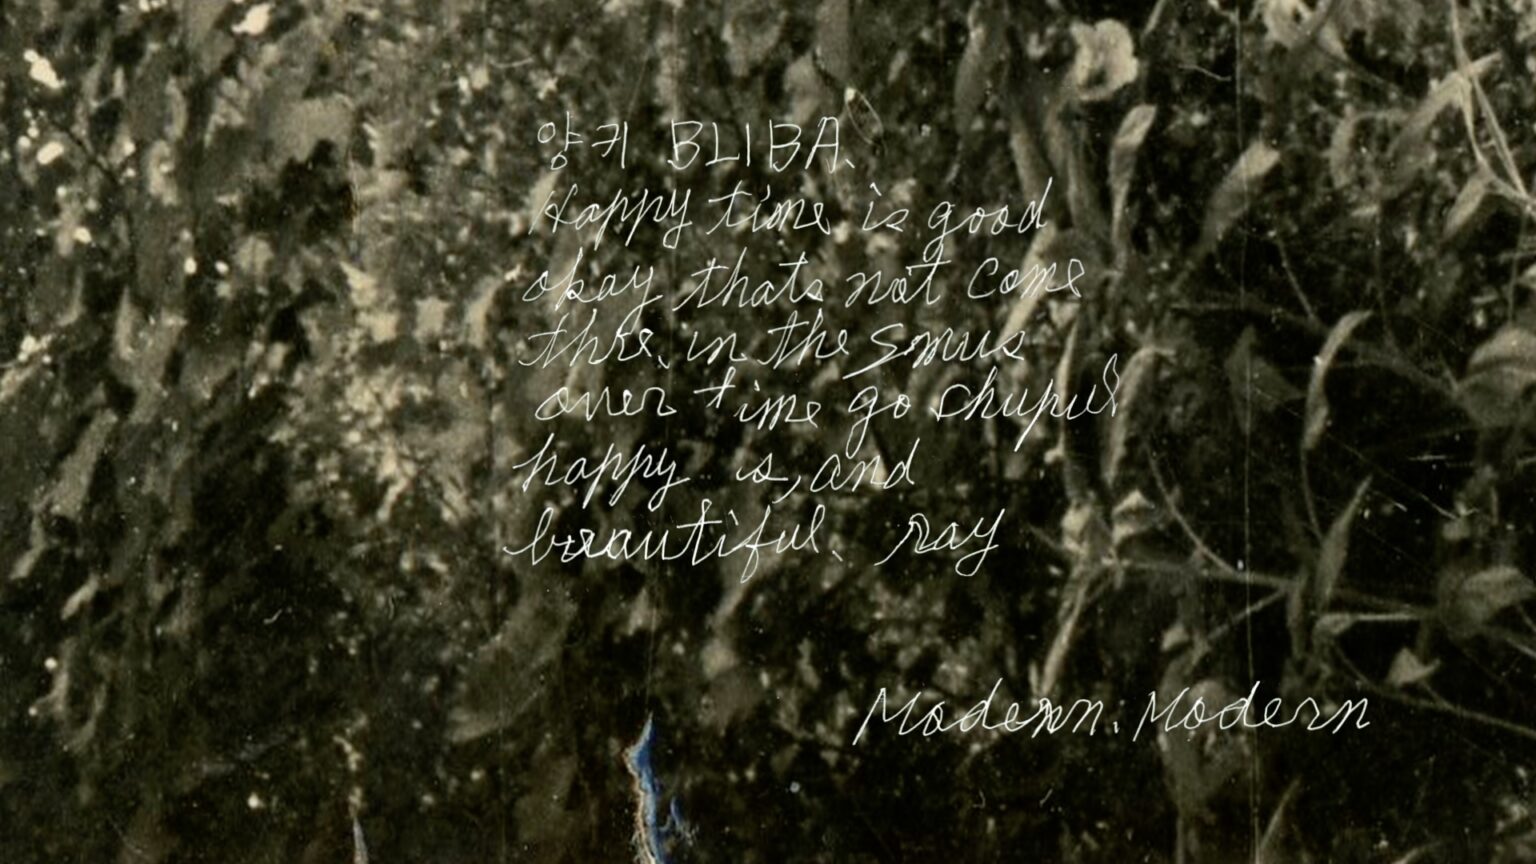 양귀 BLIBA.
Happy time is good
okay thats not come
thre. in the smus
over time go shupul
happy is, and
beautiful. ray
Modern. Modern